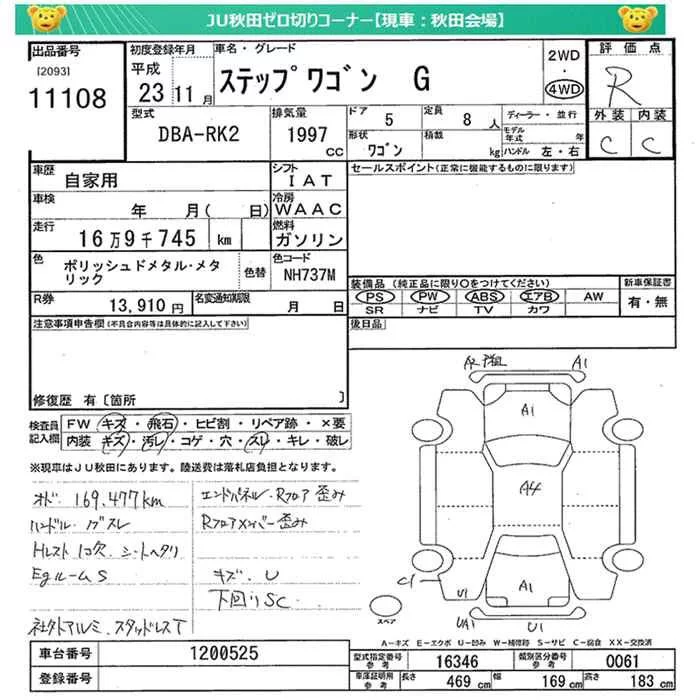 JU秋田ゼロ切りコーナー【現車：秋田会場】
出品番号
[2093]
11108
初度登録年月
平成
23 11月
車名・グレード
ステップワゴン G
2WD
・
4WD
評価点
R
外装 内装
C C
型式
DBA-RK2
排気量
1997
CC
ドア
5
定員
8 人
形状
ワゴン
積載
kg
ディーラー・並行
モデル年式 年
ハンドル 左・右
車歴
自家用
シフト
IAT
車検
年 月( 日)
冷房
WAAC
走行
16万9千745 km
燃料
ガソリン
色
ポリッシュドメタル・メタリック
色替
色コード
NH737M
R券
13,910円
名変通知期限
月 日
セールスポイント(正常に機能するものに限ります)
装備品(純正品に限り○をつけてください)
PS PW ABS エアB AW
SR ナビ TV カワ
新車保証書
有・無
後日品
注意事項申告欄(不具合内容等は具体的に記入して下さい)
修復歴 有〔箇所 〕
検査員記入欄
FW キズ・飛石・ヒビ割・リペア跡・×要
内装 キズ・汚レ・コゲ・穴・スレ・キレ・破レ
※現車はJU秋田にあります。陸送費は落札店負担となります。
オド 169.477km
ハンドル・カブスレ
Hレスト1コ欠 シートヘタリ
EgルームS
社外アルミ.スタッドレスT
エンドパネル.Rフロア歪み
Rフロアメンバー歪み
キズ.U
下回りSC
A2
A1
A1
A4
A1
C1
U1
UA1
U1
スペア
A-キズ E-エクボ U-凹み W-補修跡 S-サビ C-腐食 XX-交換済
車台番号
1200525
登録番号
型式指定番号
参考
16346
類別区分番号
参考
0061
車庫証明用
参考
長さ
469 cm
幅
169 cm
高さ
183 cm